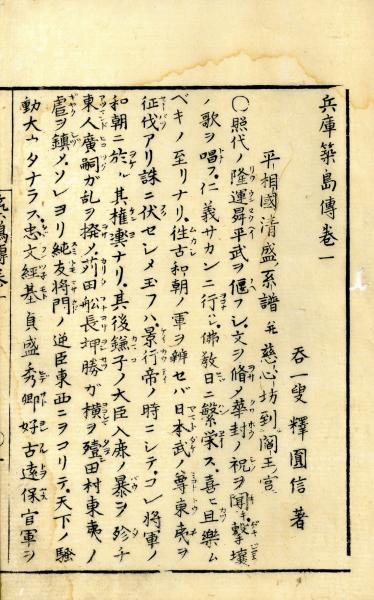 兵庫築島傳卷一
吞一叟 釋圓信 著
平相國清盛系譜并慈心坊到閻王宮
〇照代ノ隆運昇平武ヲ偃フシ文ヲ脩メ華封ノ祝ヲ聞キ撃壤
ノ歌ヲ唱フ仁義サカンニ行ハレ佛教日ニ繁栄ス喜ヒ且樂ム
ベキノ至リナリ徃古和朝ノ軍ヲ辨セバ日本武ノ尊東夷ヲ
征伐アリ誅ニ伏セシメ玉フハ景行帝ノ時ニシテコレ將軍ノ
和朝ニ於ル其権輿ナリ其後鎌子ノ大臣入鹿ノ暴ヲ殄チ
東人廣嗣ガ乱ヲ撥メ苅田船長坪勝ガ横ヲ殪田村東夷ノ
虐ヲ鎮メソレヨリ純友將門ノ逆臣東西ニヲコリテ天下ノ騒
動大カタナラス忠文經基貞盛秀郷好古遠保官軍ヲ